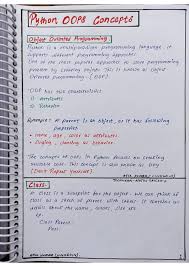 Python OOPS Concepts
Object Oriented Programming
Python is a multiparadigm programming language, it
supports different programming approach.
One of the most popular approaches to solve programming
problem by creating objects. This is known as Object
Oriented programming - (OOP)
OOP has two characteristics
1) attributes
2) Behavior
Example: A Parrot is an object, as it has following
properties
- name, age, color as attributes
- Singing, dancing as behavior
The concept of OOPs in Python focuses on creating
reusable code. This concept is also known as DRY
(Don't Repeat Yourself)
Class
A class is a blueprint for the object. We can think of
class as a sketch of parrot with labels. It contains all
details about the name, colors, size etc.
eg.
Class Parrot:
Pass